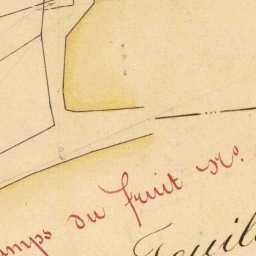 amps du fruit No.
Feuil